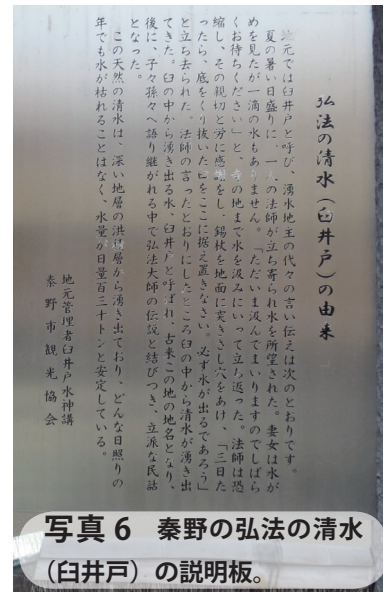 弘法の清水(臼井戸)の由来
地元では臼井戸と呼び、湧水地主の代々の言い伝えは次のとおりです。
夏の暑い日盛りに、一人の法師が立ち寄られ水を所望された。妻女は水が
めを見たが一滴の水もありません。「ただいま汲んでまいりますのでしばら
くお待ちください」と、寺の地まで水を汲みにいって立ち返った。法師は恐
縮し、その親切と労に感謝をし、錫杖を地面に突きさし穴をあけ、「三日た
ったら、底をくり抜いた臼をここに据え置きなさい。必ず水が出るであろう」
と立ち去られた。法師の言ったとおりにしたところ臼の中から清水が湧き出
てきた。臼の中から湧き出る水、臼井戸と呼ばれ、古来この地の地名となり、
後に、子々孫々へ語り継がれる中で弘法大師の伝説と結びつき、立派な民話
となった。
この天然の清水は、深い地層の洪積層から湧き出ており、どんな日照りの
年でも水が枯れることはなく、水量が日量百三十トンと安定している。
地元管理者臼井戸水神講
秦野市観光協会
写真6 秦野の弘法の清水
(臼井戸)の説明板。